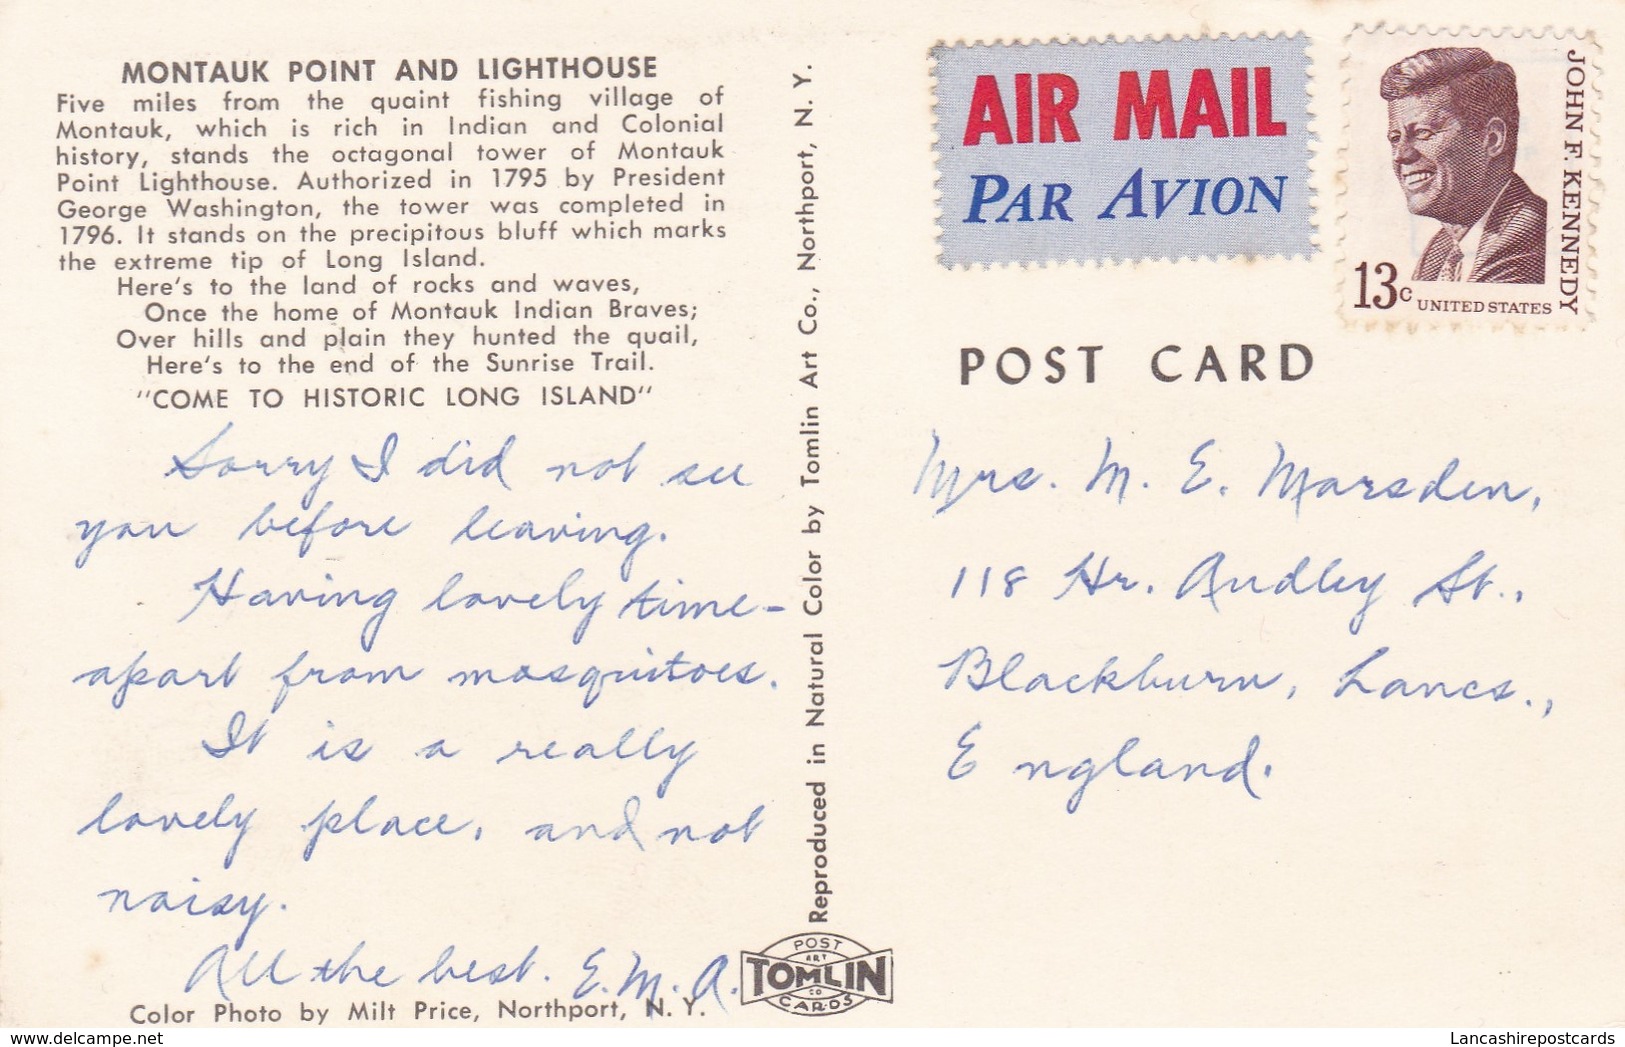 MONTAUK POINT AND LIGHTHOUSE
Five miles from the quaint fishing village of
Montauk, which is rich in Indian and Colonial
history, stands the octagonal tower of Montauk
Point Lighthouse. Authorized in 1795 by President
George Washington, the tower was completed in
1796. It stands on the precipitous bluff which marks
the extreme tip of Long Island.
Here's to the land of rocks and waves,
Once the home of Montauk Indian Braves;
Over hills and plain they hunted the quail,
Here's to the end of the Sunrise Trail.
"COME TO HISTORIC LONG ISLAND"
Sorry I did not see
you before leaving.
Having lovely time -
apart from mosquitoes.
It is a really
lovely place, and not
noisy.
All the best. E. M. A.
Color Photo by Milt Price, Northport, N. Y.
Reproduced in Natural Color by Tomlin Art Co., Northport, N. Y.
POST
ART
TOMLIN
CO
CARDS
AIR MAIL
PAR AVION
JOHN F. KENNEDY
13c UNITED STATES
POST CARD
Mrs. M. E. Marsden,
118 Hr. Audley St.,
Blackburn, Lancs.,
England.
Lancashirepostcards